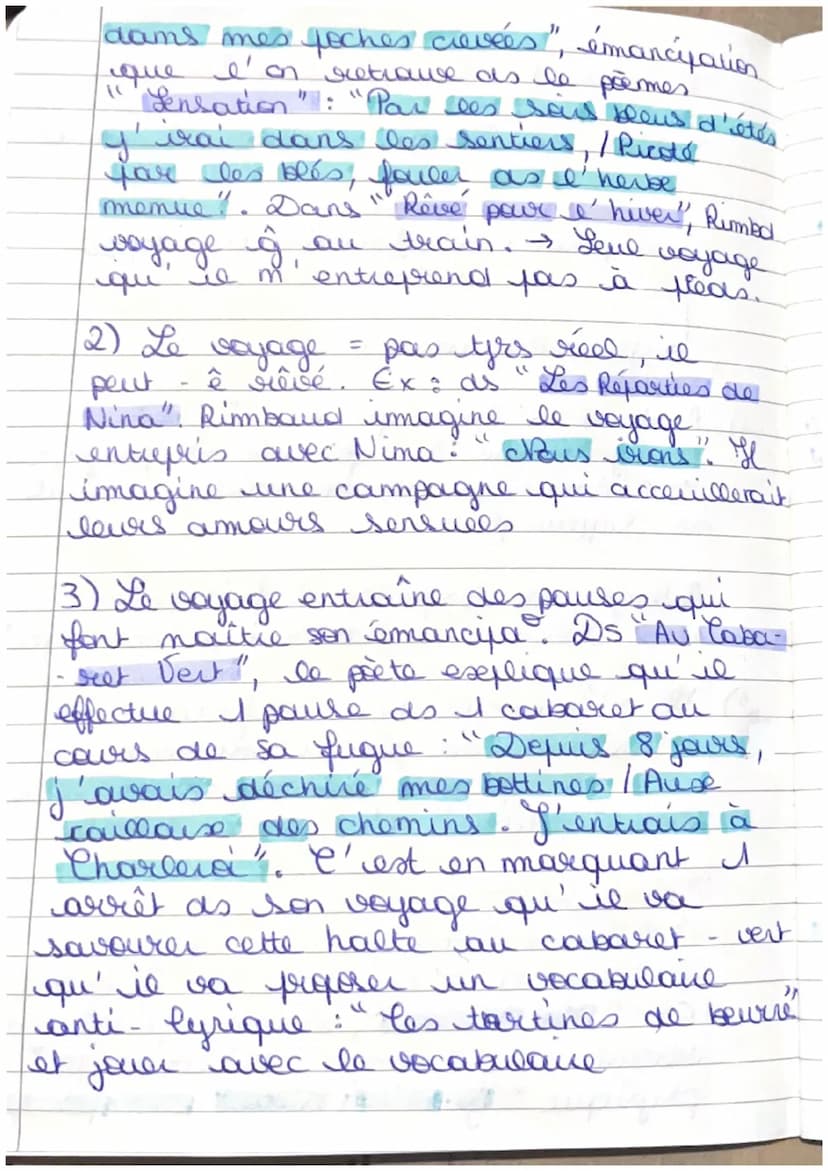 dans mes poches crevées", émancipation
que l'on retrouve ds le poèmes
"Sensation" : "Par les soirs bleus d'étés
j'irai dans les sentiers, / Picoté
par les blés, fouler ds l'herbe
menue". Dans "Rêvé pour l'hiver", Rimbd
voyage ĝ au train. → Seul voyage
qu'il n'entreprend pas à pieds.
2) Le voyage = pas tjrs réel, il
peut - ê rêvé. Ex : ds "Les Réparties de
Nina". Rimbaud imagine le voyage
entrepris avec Nina : "Nous irons". Il
imagine une campagne qui accueillerait
leurs amours sensuels
3) Le voyage entraîne des pauses qui
font naître son émancipa°. Ds "Au Caba-
-ret Vert", le poète explique qu'il
effectue 1 pause ds 1 cabaret au
cours de sa fugue : "Depuis 8 jours,
j'avais déchiré mes bottines / Aux
cailloux des chemins. J'entrais à
Charleroi". C'est en marquant 1
arrêt ds son voyage qu'il va
savourer cette halte au cabaret - vert
qu'il va proposer un vocabulaire
anti - lyrique : "les tartines de beurre"
et jouer avec le vocabulaire